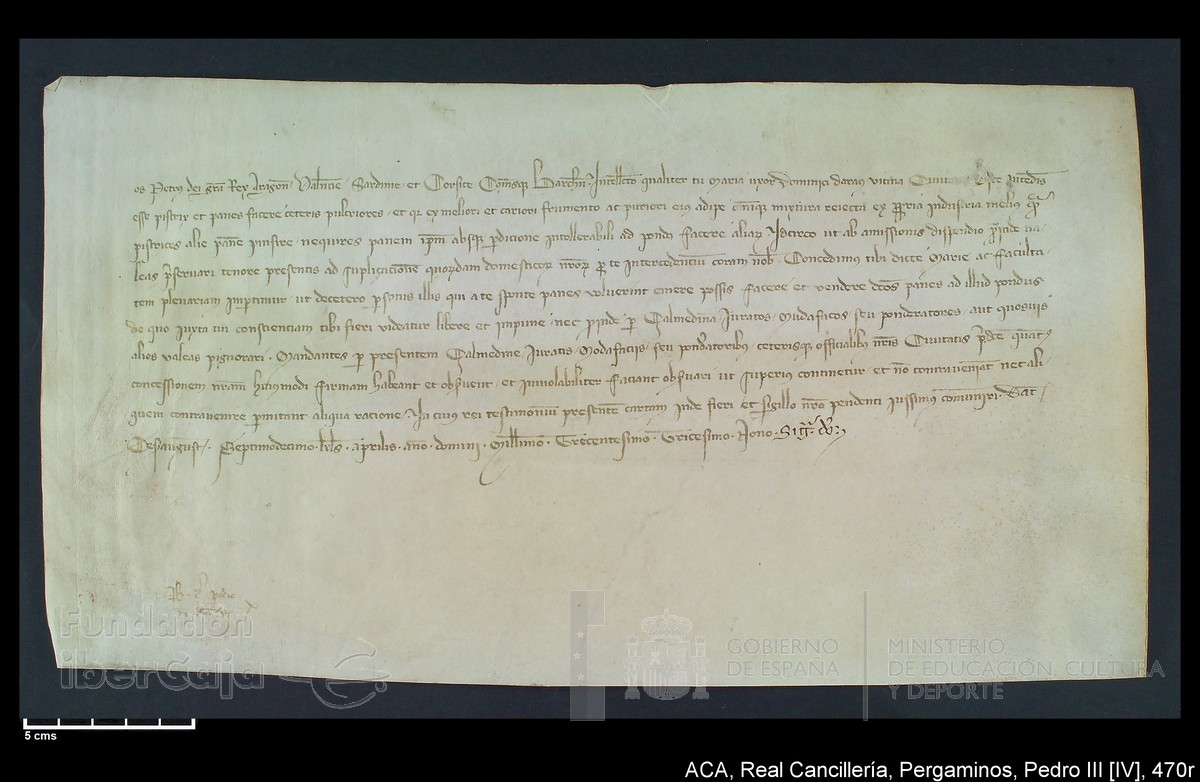 os Petrus dei gra Rex Aragon Valencie Sardinie et Corsice Comesq Barchn Intellecto qualiter tu Maria uxor Dominici vicina
esse pistrix et panes facere ceteris pulcriores et qz ex meliori et cariori frumento ac puriori eius adipe mixtura reiecta ex ppria industria melius
pistrices alie pane pinsire nequires panem ipm absqz pdicione intollerabili ad pondus facere aliarz Idcirco ut ab amissionis dispendio
leas pservari tenore presentis ad supplicacione quordam domesticorz nrorz p te intercedencium coram nob Concedimus tibi dicte Marie ac faculta
tem plenariam impertimur ut decetero psonis illis qui a te sponte panes voluerint emere possis facere et vendere dcos panes ad illud pondus
de quo iuxta tui consciencian tibi fieri videatur libere et impune nec pinde p Çalmedina Iuratos Mudaficos seu ponderatores aut quosvis
alios valeas pignorari Mandantes p presentem Çalmedine Iuratis Modaficiis seu ponderatoribus ceterisqz officialibus nris Civitatis pdce
concessionem nram huiusmodi firmam habeant et observent et inviolabiliter faciant observari ut superius continetur et no contraveniat nec ali
quem contravenire pmitant aliqua racione In cuius rei testimonium presente cartam inde fieri et sigillo nro pendenti iussimus comuniri Dat
Cesauguste Septimodecimo kls aprilis ano domini Millimo Trecentesimo Tricesimo Nono
Fundación
iberCaja
GOBIERNO
DE ESPAÑA
MINISTERIO
DE EDUCACIÓN, CULTURA
Y DEPORTE
5 cms
ACA, Real Cancillería, Pergaminos, Pedro III [IV], 470r